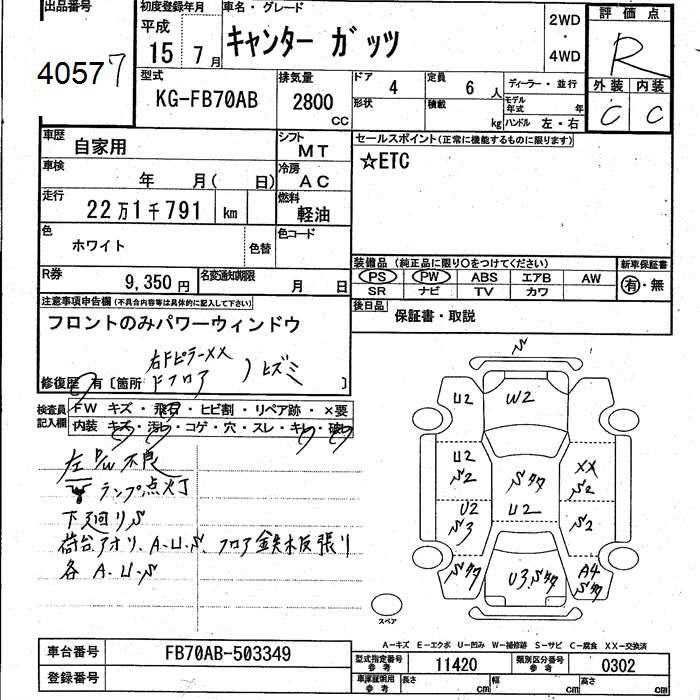 出品番号
40577
初度登録年月
平成
15 7 月
車名・グレード
キャンター ガッツ
2WD
・
4WD
評価点
R
外装 内装
C C
型式
KG-FB70AB
排気量
2800
CC
ドア
4
定員
6 人
ディーラー・並行
形状
積載
kg
モデル年式
年
ハンドル 左・右
車歴
自家用
シフト
MT
セールスポイント(正常に機能するものに限ります)
☆ETC
車検
年 月( 日)
冷房
AC
走行
22万1千791 km
燃料
軽油
色
ホワイト
色替
色コード
R券
9,350 円
名変通知期限
月 日
装備品 (純正品に限り○をつけてください)
PS PW ABS エアB AW
SR ナビ TV カワ
新車保証書
有・無
後日品
保証書・取説
注意事項申告欄(不具合内容等は具体的に記入して下さい)
フロントのみパワーウィンドウ
右FピラーXX
Fフロア
ヒズミ
修復歴 有 [箇所 ]
検査員記入欄
FW キズ・飛石・ヒビ割・リペア跡・×要
内装 キズ・汚レ・コゲ・穴・スレ・キレ・破レ
左P/W不良
ランプ点灯
下廻りS
荷台アオリ、A.U.S、フロア鉄板張り
各A.U.S
S
U2 W2
U2
S2
Sタタ
XX
S2
U2
S3
U2
S2
Sタタ
U3.Sタタ
A4
Sタタ
スペア
A－キズ E－エクボ U－凹み W－補修跡 S－サビ C－腐食 XX－交換済
車台番号
FB70AB-503349
登録番号
型式指定番号
参考
11420
類別区分番号
参考
0302
車庫証明用
参考
長さ
cm
幅
cm
高さ
cm